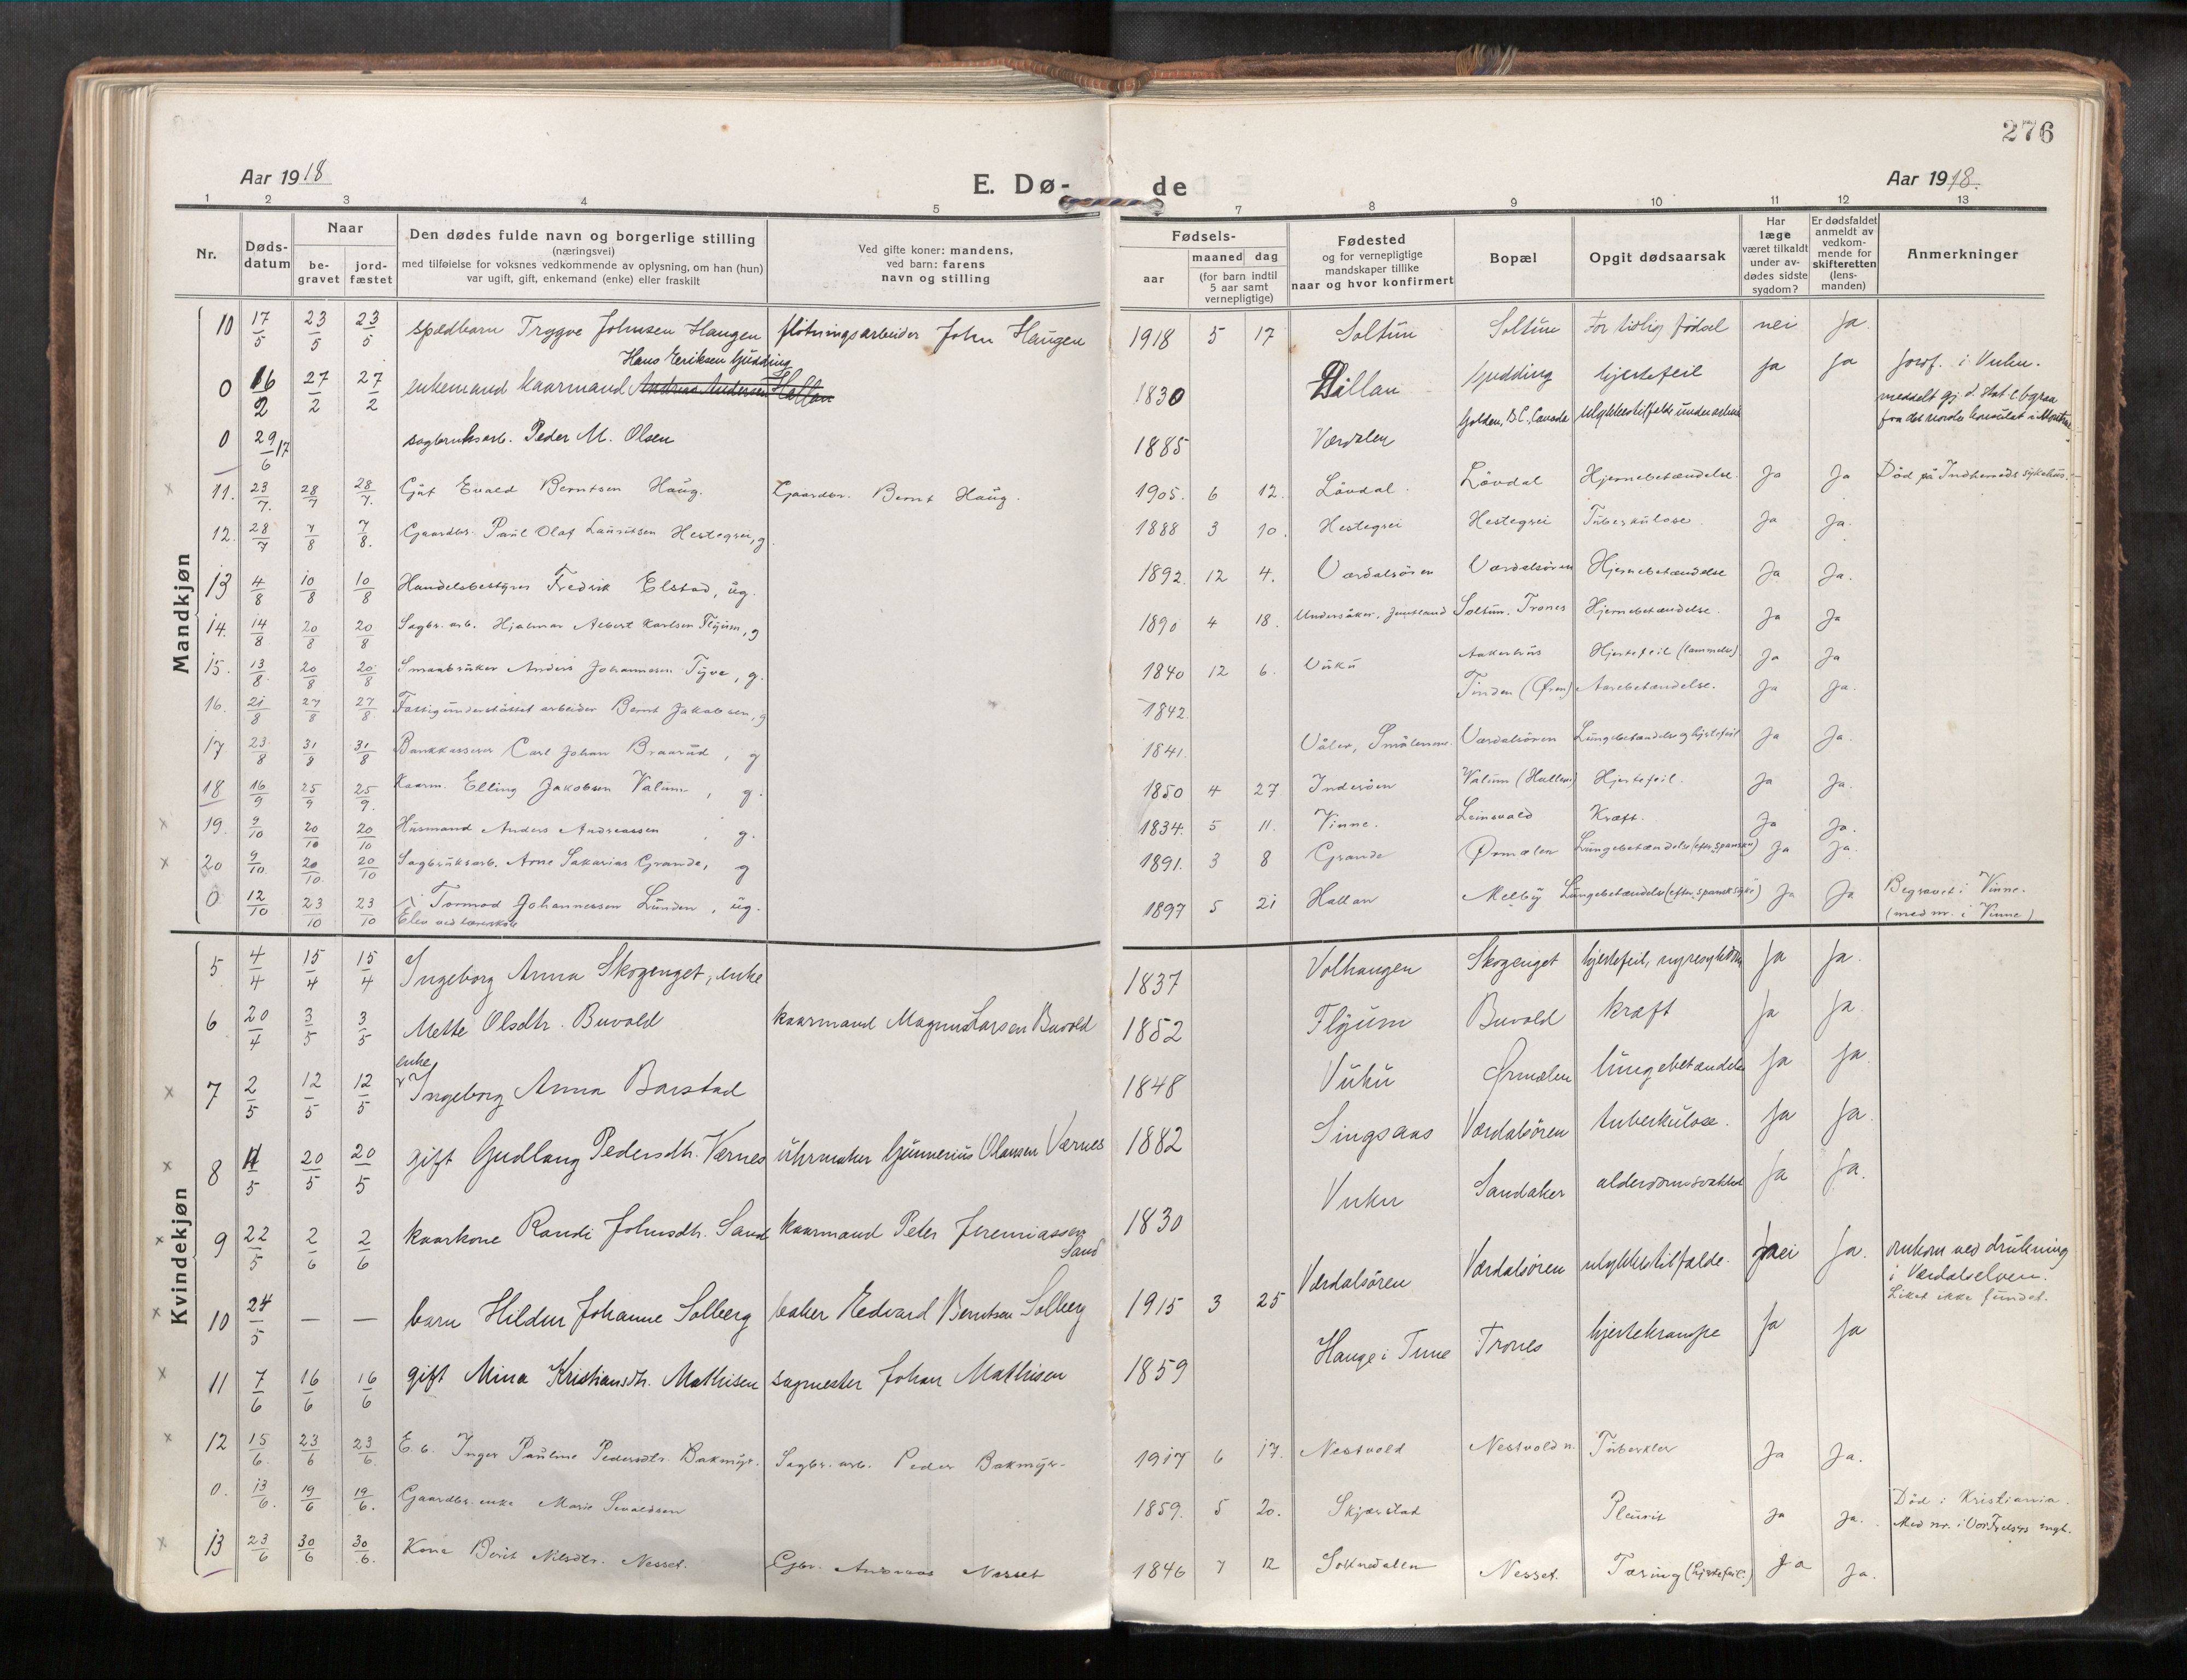 276
Aar 1918
E. Dø-
de
Aar 1918.
1 2 3 4 5 7 8 9 10 11 12 13
Nr.
Døds-
datum
Naar
be-
gravet
jord-
fæstet
Den dødes fulde navn og borgerlige stilling
(næringsvei)
med tilføielse for voksnes vedkommende av oplysning, om han (hun)
var ugift, gift, enkemand (enke) eller fraskilt
Ved gifte koner: mandens,
ved barn: farens
navn og stilling
Fødsels-
aar
maaned dag
(for barn indtil
5 aar samt
vernepligtige)
Fødested
og for vernepligtige
mandskaper tillike
naar og hvor konfirmert
Bopæl
Opgit dødsaarsak
Har
læge
været tilkaldt
under av-
dødes sidste
sygdom?
Er dødsfaldet
anmeldt av
vedkom-
mende for
skifteretten
(lens-
manden)
Anmerkninger
Mandkjøn
10 17/5 23/5 23/5 spædbarn Trygve Johnsen Haugen fløtningsarbeider John Haugen 1918 5 17 Soltun Soltun For tidlig fødsel nei ja
Hans Eriksen Gudding
0 16/2 27/2 27/2 enkemand kaarmand Andreas Andersen Hallan 1830 Hallan Gudding hjertefeil ja ja Jordf. i Vuku.
0 29/6 17 sagbruksarb. Peder M. Olsen 1885 Værdalen Golden, B.C., Canada ulykkestilfælde under arbeide meddelt gj. d. stat.
fra det norske konsulat i
11. 23/7. 28/7 28/7. Gut Evald Berntsen Haug. Gaardbr. Bernt Haug. 1905. 6 12. Lövdal. Lövdal Hjernebetændelse. Ja Ja Död på Indherreds sykehus.
12. 28/7 7/8 7/8. Gaardbr. Paul Olaf Lauritsen Hestegrei, g. 1888 3 10. Hestegrei Hestegrei Tuberkulose. Ja Ja.
13 4/8 10/8 10/8 Handelsbestyrer Fredrik Elstad, ug. 1892. 12 4. Værdalsören Værdalsören Hjernebetændelse Ja Ja.
14. 14/8 20/8 20/8 Sagbr. arb. Hjalmar Albert Karlsen Flyum, g 1890 4 18. Undersåker, Jemtland Soltun, Trones Hjernebetændelse. Ja Ja
15. 13/8. 20/8 20/8 Smaabruker Anders Johannesen Tyve, g. 1840 12 6. Vuku Aakerhus Hjertefeil (lammelse) Ja Ja
16. 21/8 27/8 27/8 Fattigunderstöttet arbeider Bernt Jakobsen, g 1842. Tinden (Øren) Aarebetændelse. Ja Ja.
17 23/8 31/8 31/8 Bankkasserer Carl Johan Braarud, g 1841. Våler, Smålenene. Værdalsören Lungebetændelse og hjertefeil Ja Ja.
18 16/9 25/9 25/9. Kaarm. Elling Jakobsen Valum, g. 1850 4 27 Inderöen Valum (Hallem) Hjertefeil. Ja Ja.
19. 9/10 20/10 20/10 Husmand Anders Andreassen, g. 1834. 5 11. Vinne. Leinsvald Kræft. Ja Ja.
20 9/10. 20/10. 20/10 Sagbruksarb. Arne Sakarias Grande, g 1891. 3 8 Grande Ørmelen Lungebetændelse (efter spansk) Ja Ja.
0 12/10 23/10 23/10 Tormod Johannessen Lunden, ug. 1897 5 21 Hallan Melby Lungebetændelse (efter spansk syke) Ja Ja Begravet i Vinne.
Elev ved lærerskole (med nr. i Vinne)
Kvindekjøn
5 4/4 15/4 15/4 Ingeborg Anna Skogenget, enke 1837 Volhaugen Skogenget hjertefeil, nyresykdom Ja Ja.
6 20/4 3/5 3/5 Mette Olsdtr. Buvold kaarmand Magnus Larsen Buvold 1852 Flyum Buvold kræft Ja Ja.
enke
7 2/5 12/5 12/5 Ingeborg Anna Barstad 1848 Vuku Ørmelen lungebetændelse Ja Ja.
8 11/5 20/5 20/5 gift Gudlaug Pedersdtr. Værnes uhrmaker Gunnerius Olausen Værnes 1882 Singsaas Værdalsören tuberkulose. Ja Ja.
9 22/5 2/6 2/6 kaarkone Randi Johnsdtr. Sand kaarmand Peter Jeremiassen
Sand 1830 Vuku Sandaker alderdomssvakhet Ja Ja.
10 24/5 — — barn Hildur Johanne Solberg baker Edvard Berntsen Solberg 1915 3 25 Værdalsören Værdalsören ulykkestilfælde. nei Ja. omkom ved drukning
i Værdalselven.
Liket ikke fundet.
11 7/6 16/6 16/6 gift Mina Kristiansdtr. Mathisen sagmester Johan Mathisen 1859 Hauge i Tune Trones hjertekrampe Ja Ja
12 15/6. 23/6 23/6. E.b. Inger Pauline Pedersdtr. Bakmyr. Sagbr. arb. Peder Bakmyr. 1917 6 17. Nestvold Nestvold n. Tuberkler Ja Ja.
0. 13/6. 19/6 19/6. Gaardbr. enke Marie Sevaldsen 1859. 5 20. Skjærstad Pleurit Ja Ja. Död i Kristiania.
Med nr. i Vor Frelsers mgh.
13 23/6 30/6 30/6. Kone Berit Nilsdtr. Nesset. Gbr. Andreas Nesset 1846 7 12 Soknedalen Nesset. Tæring (hjertefeil.) Ja Ja.